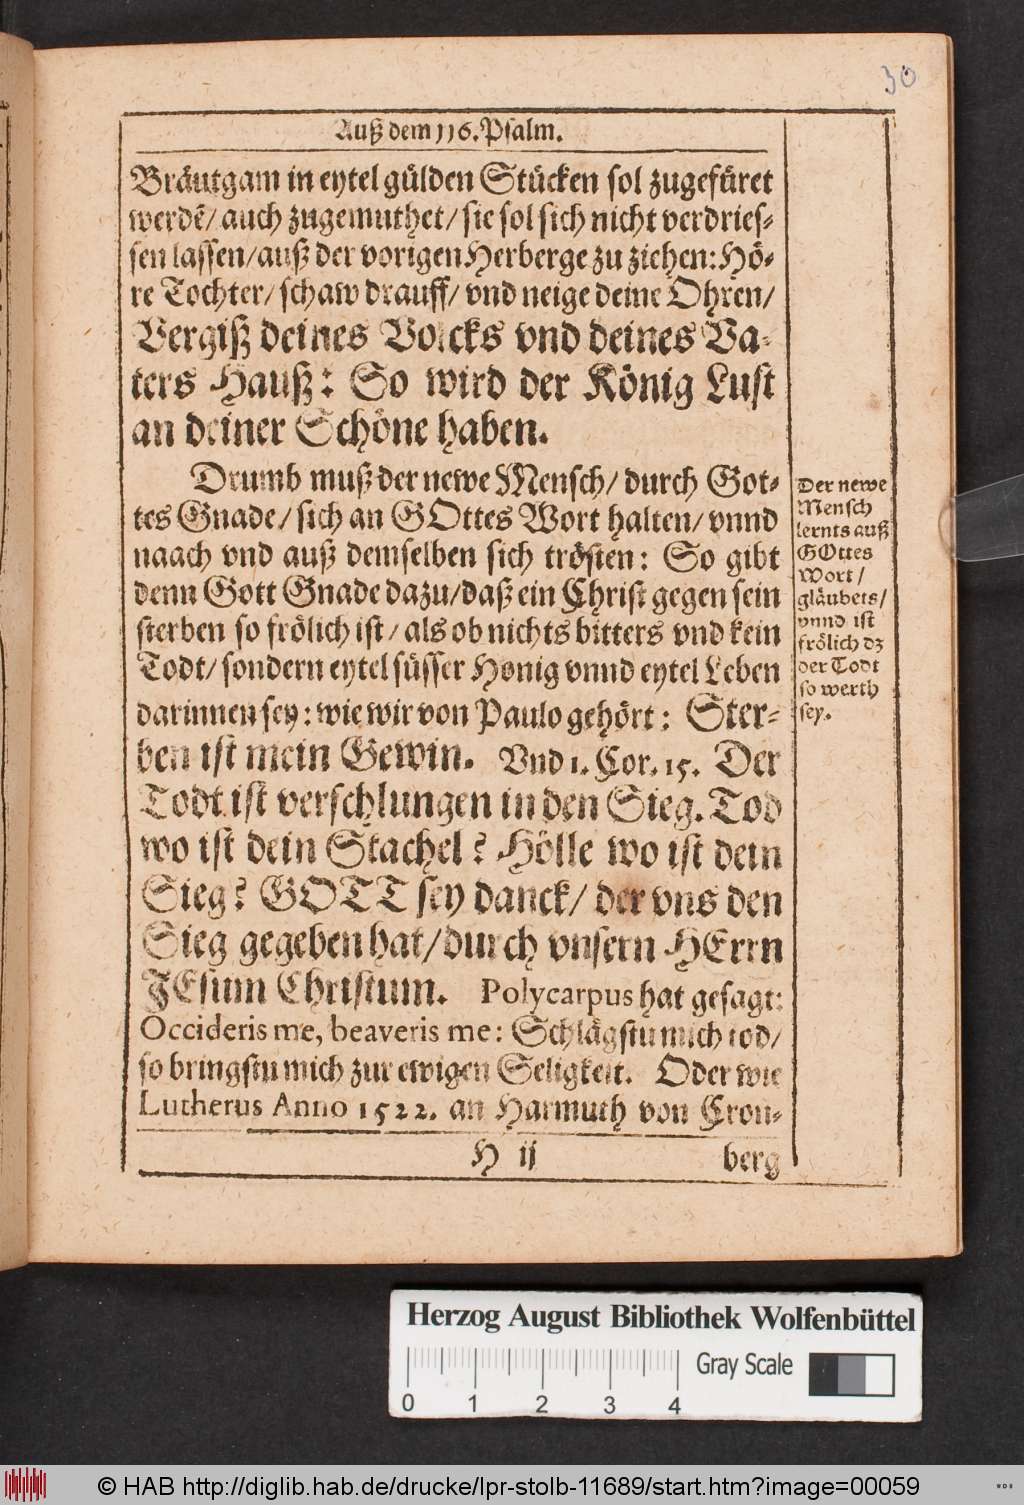 30
Auß dem 116. Psalm.
Bräutgam in eytel gülden Stücken sol zugefüret
werdē/ auch zugemuthet/ sie sol sich nicht verdries-
sen lassen/auß der vorigen Herberge zu ziehen: Hö-
re Tochter/ schaw drauff/ vnd neige deine Ohren/
Vergiß deines Volcks vnd deines Va-
ters Hauß: So wird der König Lust
an deiner Schöne haben.
Drumb muß der newe Mensch/ durch Got-
tes Gnade/ sich an GOttes Wort halten/ vnnd
naach vnd auß demselben sich trösten: So gibt
denn Gott Gnade dazu/daß ein Christ gegen sein
sterben so frölich ist/ als ob nichts bitters vnd kein
Todt/ sondern eytel süsser Honig vnnd eytel Leben
darinnen sey: wie wir von Paulo gehört: Ster-
ben ist mein Gewin. Vnd 1. Cor. 15. Der
Todt ist verschlungen in den Sieg. Tod
wo ist dein Stachel? Hölle wo ist dein
Sieg? GOTT sey danck/ der vns den
Sieg gegeben hat/durch vnsern HErrn
JEsum Christum. Polycarpus hat gesagt:
Occideris me, beaveris me: Schlägstu mich tod/
so bringstu mich zur ewigen Seligkeit. Oder wie
Lutherus Anno 1522. an Harmuth von Cron-
H ij berg
Der newe
Mensch
lernts auß
GOttes
Wort/
gläubets/
vnnd ist
frölich dz
der Todt
so werth
sey.
Herzog August Bibliothek Wolfenbüttel
Gray Scale
0 1 2 3 4
© HAB http://diglib.hab.de/drucke/lpr-stolb-11689/start.htm?image=00059